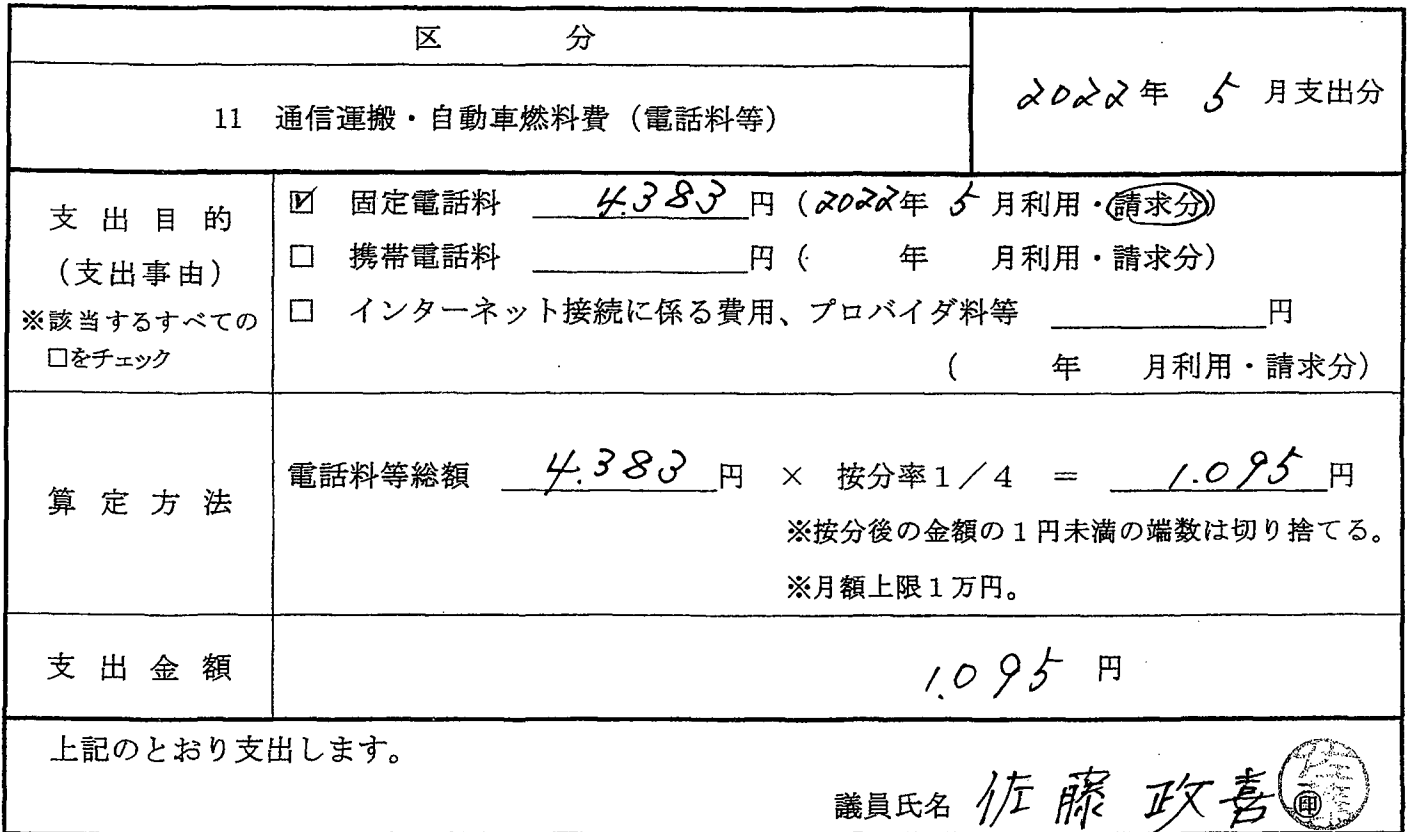 区 分
11 通信運搬・自動車燃料費(電話料等)
2022年 5 月支出分
支出目的
(支出事由)
※該当するすべての
□をチェック
☑ 固定電話料 4.383 円(2022年 5 月利用・請求分)
□ 携帯電話料 円( 年 月利用・請求分)
□ インターネット接続に係る費用、プロバイダ料等 円
( 年 月利用・請求分)
算定方法
電話料等総額 4.383 円 × 按分率1/4 = 1.095 円
※按分後の金額の1円未満の端数は切り捨てる。
※月額上限1万円。
支出金額
1.095 円
上記のとおり支出します。
議員氏名 佐藤 政喜 ㊞